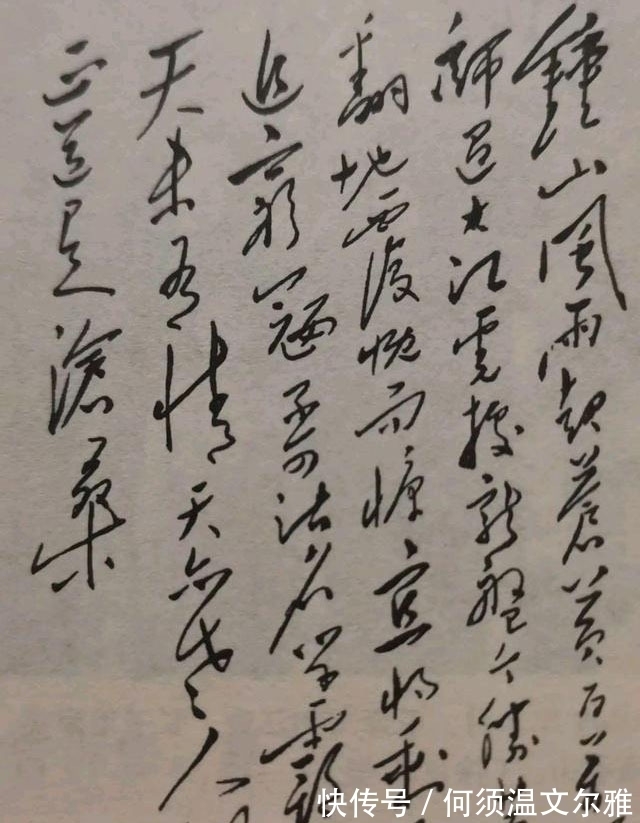 鐘山風雨起蒼黄百萬
師過大江虎踞龍盤今勝
翻地覆慨而慷宜將剩
追窮寇不可沽名學霸
天若有情天亦老人
正道是滄桑
快传号/何须温文尔雅